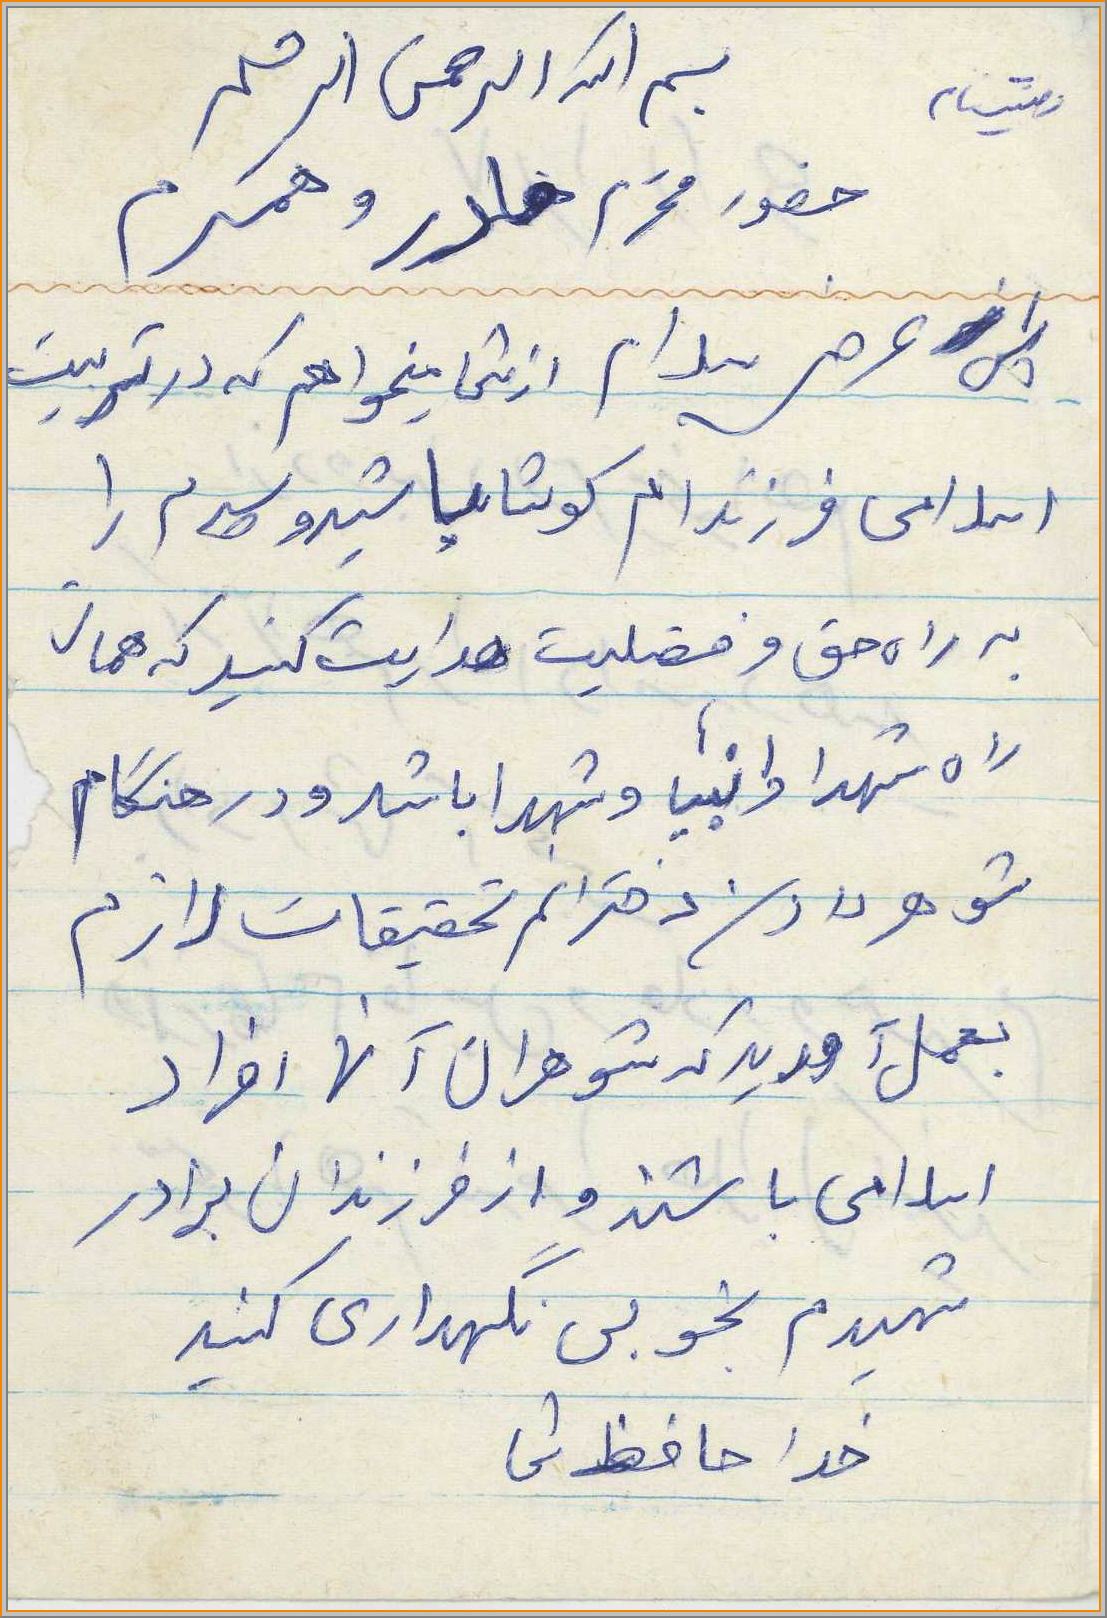 وصیتنامه
بسم الله الرحمن الرحیم
حضور محترم مادر و همسرم
پس از عرض سلام از شما میخواهم که در تربیت
اسلامی فرزندانم کوشا باشید و پسرم را
به راه حق و فضلیت هدایت کنید که همان
راه شهدا و انبیا و شهدا باشد و در هنگام
شوهر دادن دخترانم تحقیقات لازم
بعمل آورید که شوهران آنها افراد
اسلامی باشند و از فرزندان برادر
شهیدم بخوبی نگهداری کنید
خدا حافظ شما